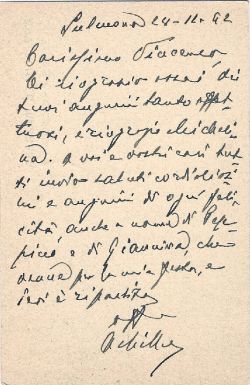 Sulmona 24-12-42
Carissimo Vincenzo,
Ti ringrazio assai di
tuoi auguri tanto affet
tuosi, e ringrazio Michelin
a. A voi e vostri cari tut
ti invio saluti cordialissi
mi e auguri di ogni feli
cità, anche a nome di Pep
pino e di Giannina, che
venne per la mia festa, e
ieri è ripartita
aff
Achille